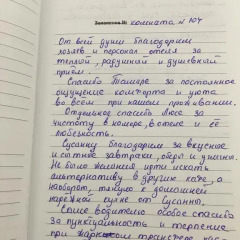 комната N 107
От всей души благодарим
хозяев и персонал отеля за
теплый, радушный и душевный
приём.
Спасибо Тамаре за постоянное
ощущение комфорта и уюта
во всём при нашем проживании.
Отдельное спасибо Люсе за
чистоту в номере, в отеле и её
любезность.
Сусанну благодарим за вкусные
и сытные завтраки, обед и ужины.
Не было желания идти искать
альтернативу в других кафе, а
наоборот, только к домашней
кухне от Сусанны.
Саше водителю особое спасибо
за пунктуальность и терпение,
при трансфере